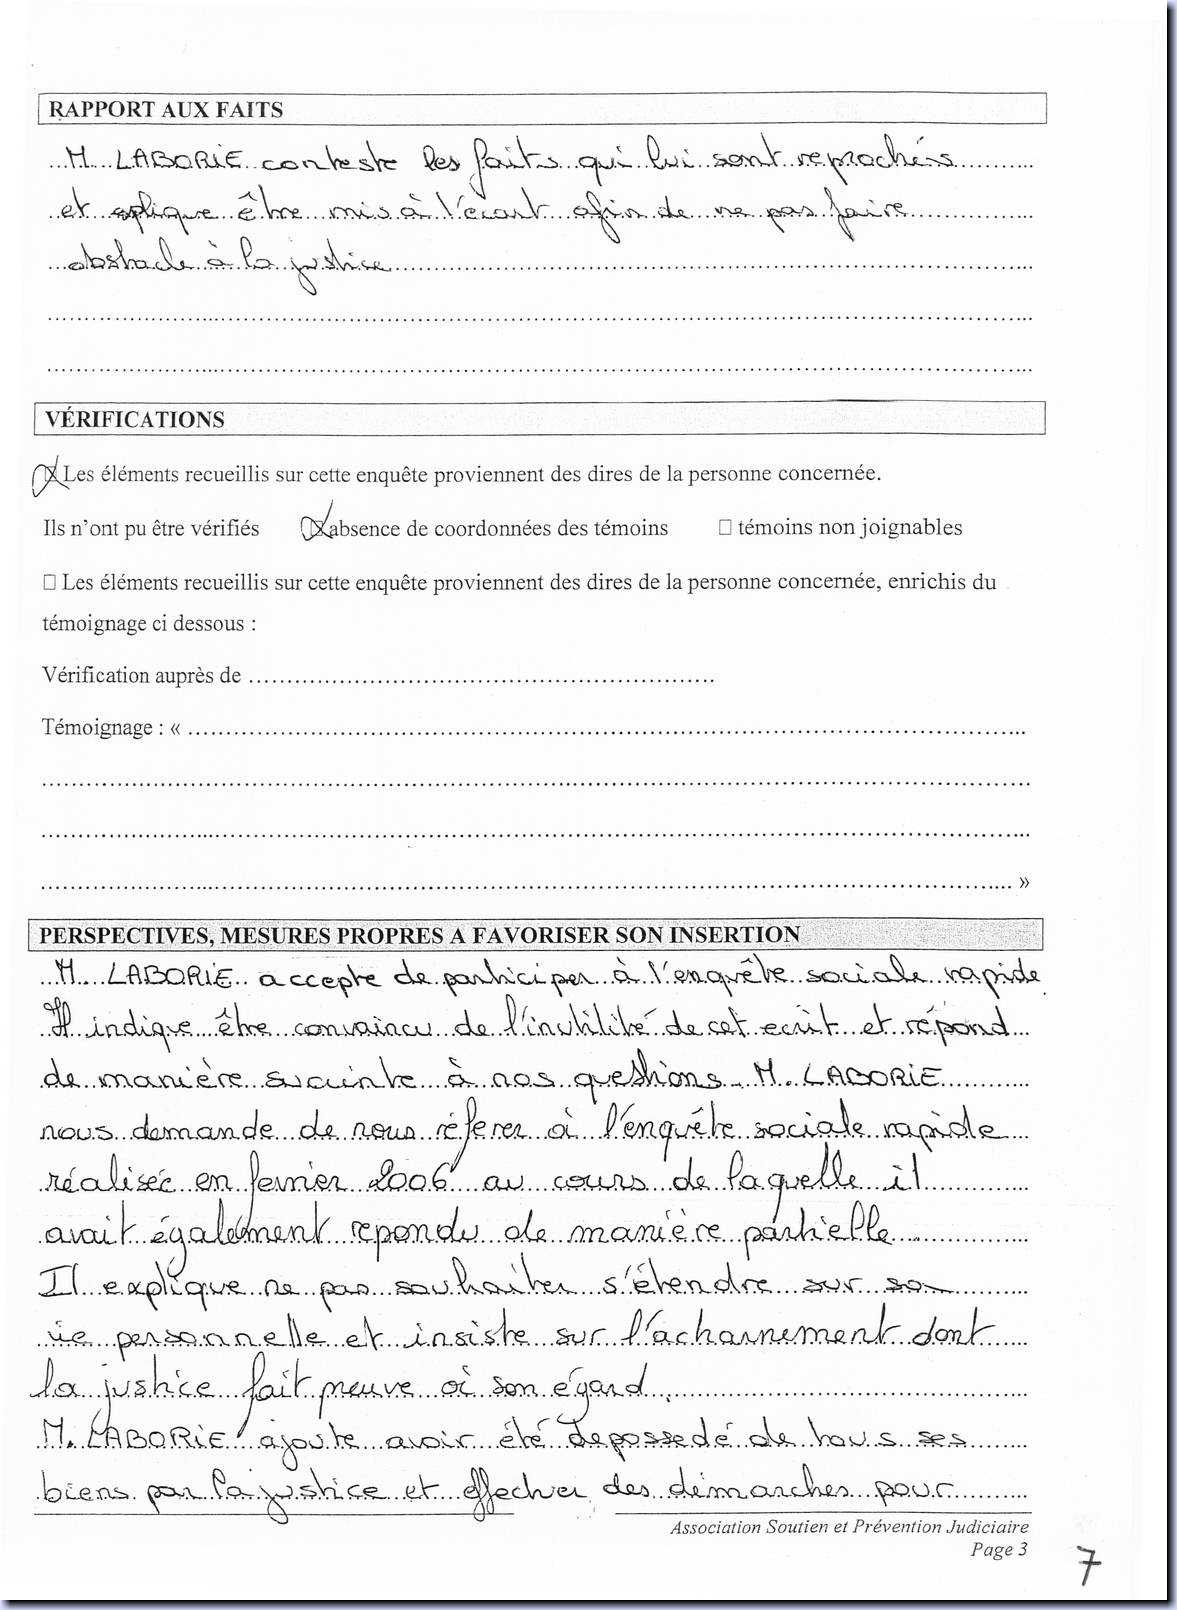 RAPPORT AUX FAITS
M. LABORIE conteste les faits qui lui sont reprochés
et explique être mis à l'écart afin de ne pas faire
obstacle à la justice
VÉRIFICATIONS
Les éléments recueillis sur cette enquête proviennent des dires de la personne concernée.
Ils n'ont pu être vérifiés absence de coordonnées des témoins témoins non joignables
Les éléments recueillis sur cette enquête proviennent des dires de la personne concernée, enrichis du
témoignage ci dessous :
Vérification auprès de ..............................................................
Témoignage : « ..............................................................
»
PERSPECTIVES, MESURES PROPRES A FAVORISER SON INSERTION
M. LABORIE accepte de participer à l'enquête sociale rapide.
Il indique être convaincu de l'inutilité de cet ecrit et répond
de manière succinte à nos questions. M. LABORIE
nous demande de nous réferer à l'enquête sociale rapide
réalisée en fevrier 2006 au cours de laquelle il
avait également repondu de manière partielle.
Il explique ne pas souhaiter s'étendre sur son
vie personnelle et insiste sur l'acharnement dont
la justice fait preuve à son égard.
M. LABORIE ajoute avoir été depossedé de tous ses
biens par la justice et effectuer des démarches pour
Association Soutien et Prévention Judiciaire
Page 3
7